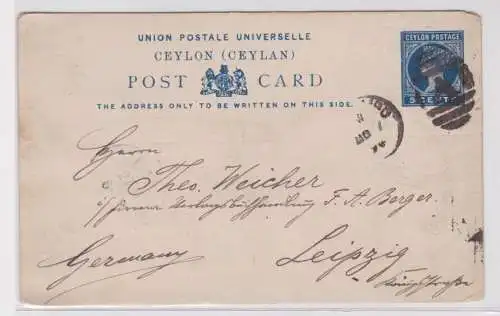 UNION POSTALE UNIVERSELLE
CEYLON (CEYLAN)
POST CARD
THE ADDRESS ONLY TO BE WRITTEN ON THIS SIDE.
CEYLON POSTAGE
5 CENTS
Herrn
Theo. Weicher
Verlagsbuchhandlung F. A. Berger.
Germany
Leipzig
Königstrasse